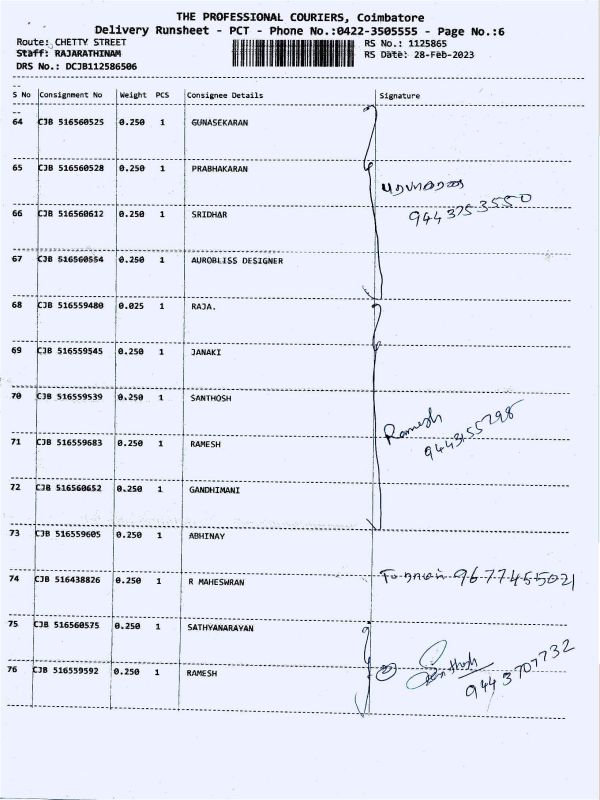 THE PROFESSIONAL COURIERS, Coimbatore
Delivery Runsheet - PCT - Phone No.:0422-3505555 - Page No.:6
Route: CHETTY STREET
RS No.: 1125865
Staff: RAJARATHINAM
RS Date: 28-Feb-2023
DRS No.: DCJB112586506
S No Consignment No Weight PCS Consignee Details Signature
64 CJB 516560525 0.250 1 GUNASEKARAN
65 CJB 516560528 0.250 1 PRABHAKARAN
66 CJB 516560612 0.250 1 SRIDHAR
9443753550
67 CJB 516560554 0.250 1 AUROBLISS DESIGNER
68 CJB 516559480 0.025 1 RAJA.
69 CJB 516559545 0.250 1 JANAKI
70 CJB 516559539 0.250 1 SANTHOSH
Ramesh
71 CJB 516559683 0.250 1 RAMESH
9443155298
72 CJB 516560652 0.250 1 GANDHIMANI
73 CJB 516559605 0.250 1 ABHINAY
74 CJB 516438826 0.250 1 R MAHESWRAN 9677455021
75 CJB 516560575 0.250 1 SATHYANARAYAN
76 CJB 516559592 0.250 1 RAMESH
9443707732